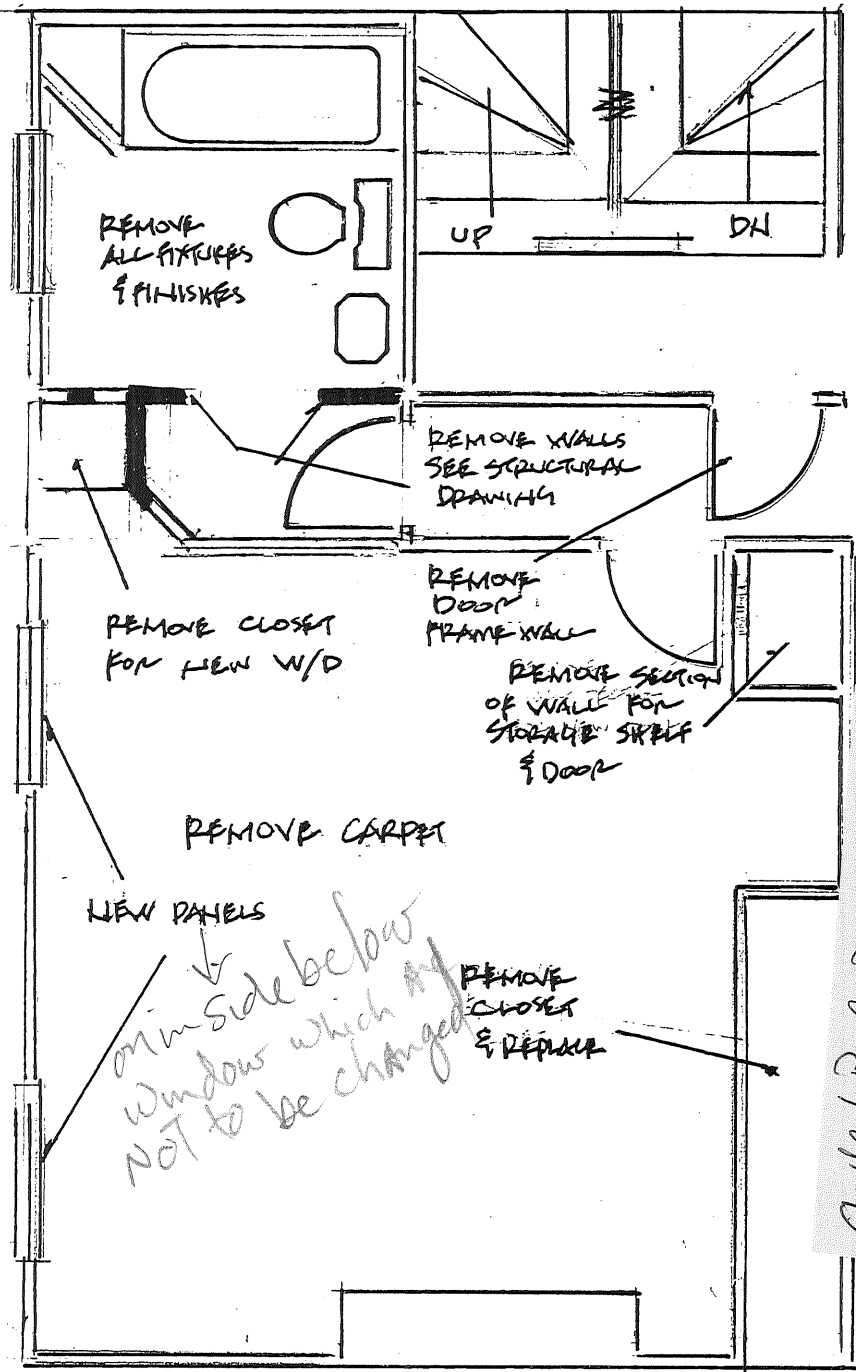 REMOVE
ALL FIXTURES
& FINISHES
UP
DN
REMOVE WALLS
SEE STRUCTURAL
DRAWING
REMOVE
DOOR
FRAME WALL
REMOVE CLOSET
FOR NEW W/D
REMOVE SECTION
OF WALL FOR
STORAGE SHELF
& DOOR
REMOVE CARPET
NEW PANELS
on inside below
window which are
NOT to be changed
REMOVE
CLOSET
& REPLACE